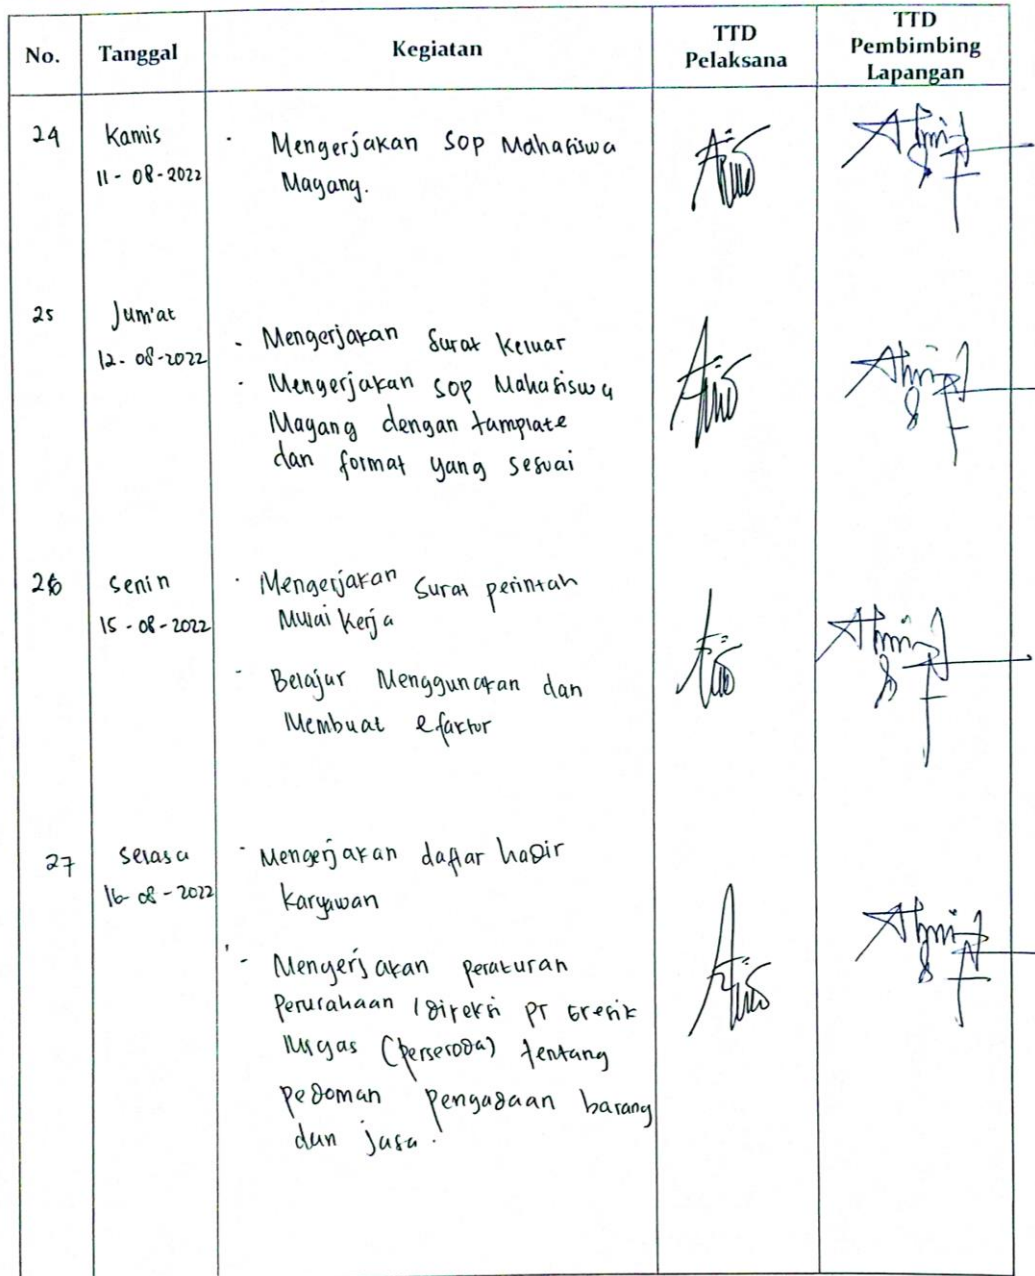 No. Tanggal Kegiatan TTD Pelaksana TTD Pembimbing Lapangan
24 Kamis 11-08-2022
· Mengerjakan SOP Mahasiswa
Magang.
25 Jum'at 12-08-2022
- Mengerjakan Surat Keluar
- Mengerjakan SOP Mahasiswa
Magang dengan tamplate
dan format yang sesuai
26 Senin 15-08-2022
· Mengerjakan Surat perintah
Mulai Kerja
- Belajar Menggunakan dan
Membuat efaktur
27 Selasa 16-08-2022
- Mengerjakan daftar hadir
Karyawan
- Mengerjakan peraturan
Perusahaan / direksi PT Gresik
Migas (Perseroda) tentang
pedoman pengadaan barang
dan jasa.